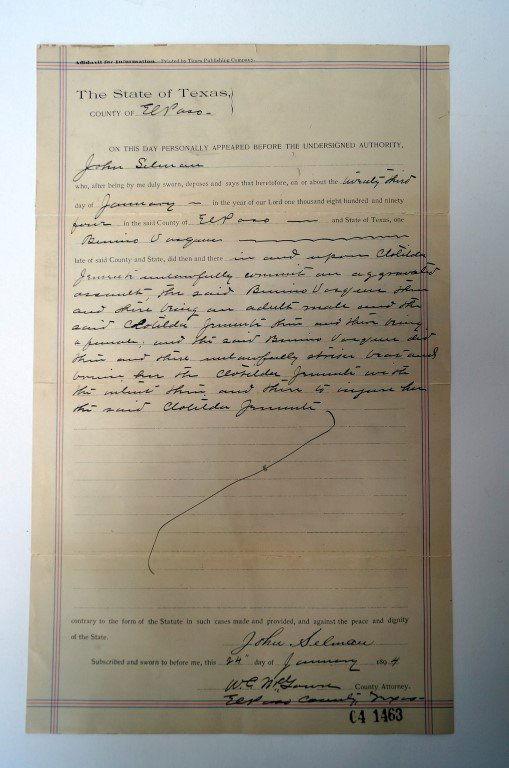 Affidavit for Information. Printed by Times Publishing Company.
The State of Texas,
COUNTY OF El Paso
ON THIS DAY PERSONALLY APPEARED BEFORE THE UNDERSIGNED AUTHORITY,
John Selman
who, after being by me duly sworn, deposes and says that heretofore, on or about the twenty third
day of January in the year of our Lord one thousand eight hundred and ninety
four in the said County of El Paso and State of Texas, one
Bruno
late of said County and State, did then and there in and upon Clotilda
unlawfully commit an aggravated
assault, the said Bruno then
and there being an adult male and the
said Clotilda then and there being
a female, and the said Bruno did
then and there unlawfully strike beat and
bruise her the Clotilda with
the intent then and there to injure her
the said Clotilda
contrary to the form of the Statute in such cases made and provided, and against the peace and dignity
of the State.
John Selman
Subscribed and sworn to before me, this 24" day of January 1894
W.C. County Attorney.
El Paso County, Texas-
C4 1463